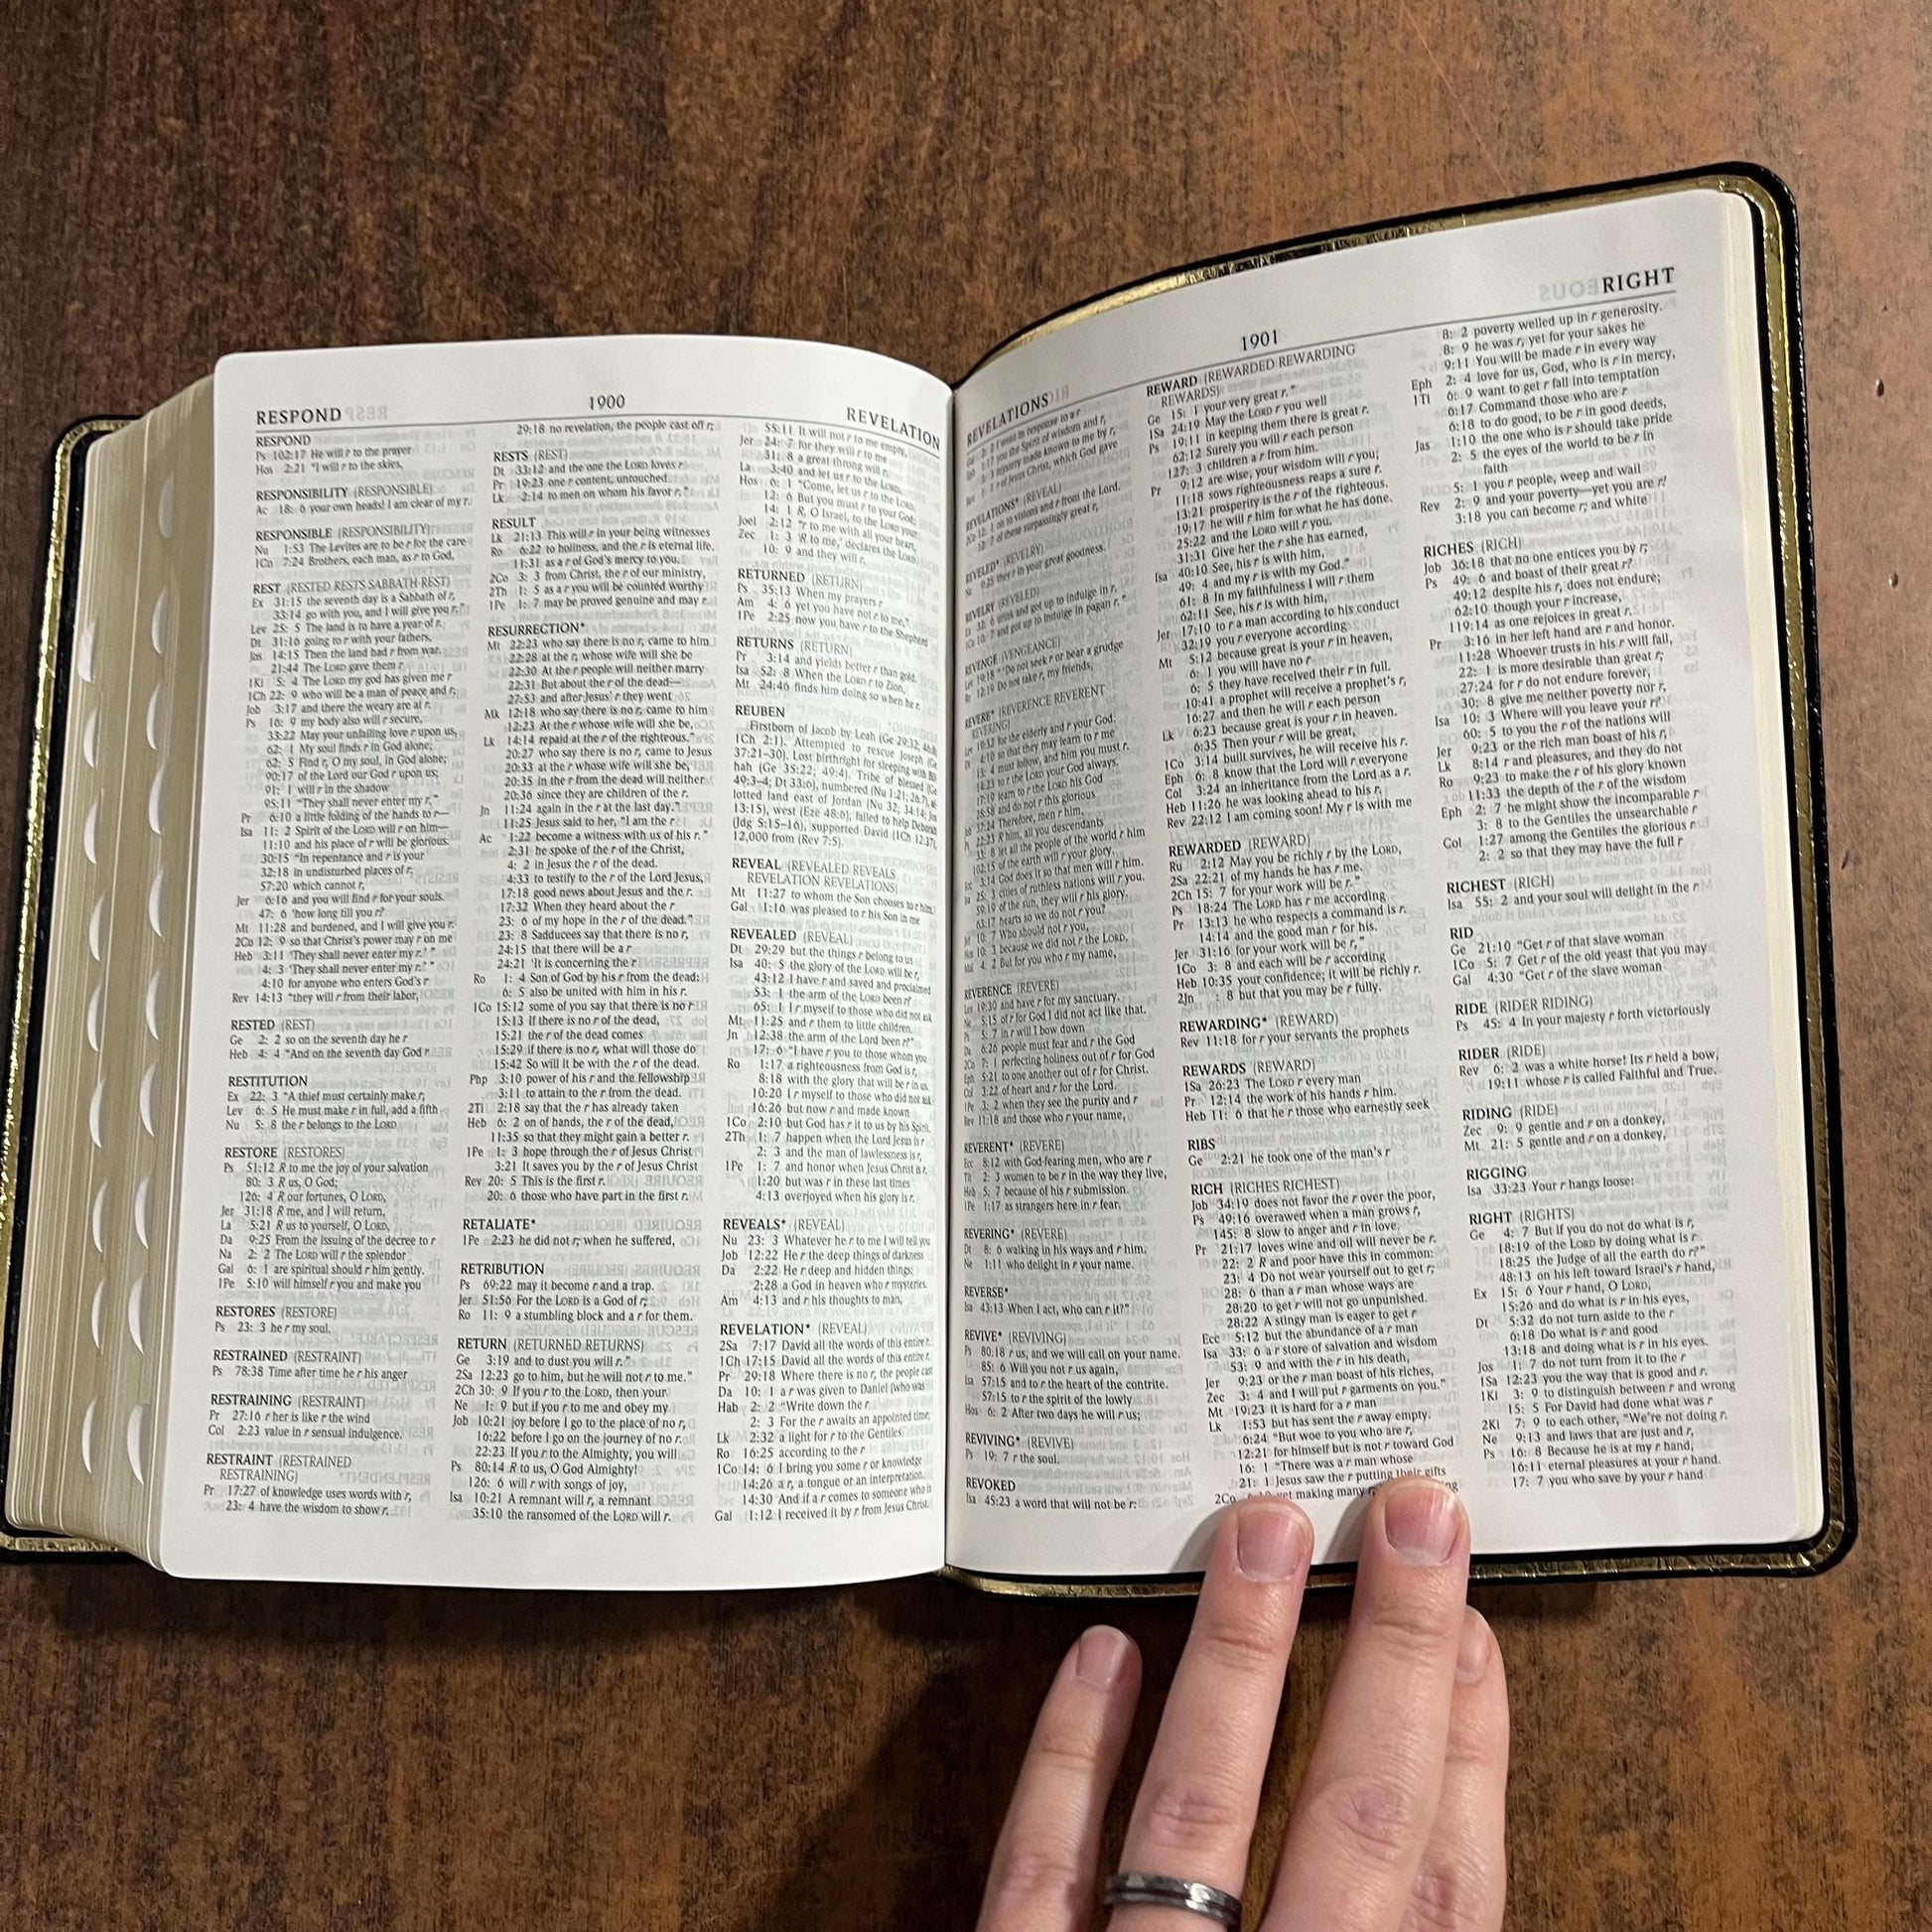 RESPOND
1900
REVELATION
RESPOND
Ps 102:17 He will r to the prayer
Hos 2:21 "I will r to the skies,
RESPONSIBILITY (RESPONSIBLE)
Ac 18: 6 your own heads! I am clear of my r.
RESPONSIBLE (RESPONSIBILITY)
Nu 1:53 The Levites are to be r for the care
1Co 7:24 Brothers, each man, as r to God,
REST (RESTED RESTS SABBATH-REST)
Ex 31:15 the seventh day is a Sabbath of r,
33:14 go with you, and I will give you r."
Lev 25: 5 The land is to have a year of r.
Dt 31:16 going to r with your fathers,
Jos 14:15 Then the land had r from war.
21:44 The LORD gave them r
1Ki 5: 4 The LORD my god has given me r
1Ch 22: 9 who will be a man of peace and r,
Job 3:17 and there the weary are at r.
Ps 16: 9 my body also will r secure,
33:22 May your unfailing love r upon us,
62: 1 My soul finds r in God alone;
62: 5 Find r, O my soul, in God alone;
90:17 of the Lord our God r upon us;
91: 1 will r in the shadow
95:11 "They shall never enter my r."
Pr 6:10 a little folding of the hands to r—
Isa 11: 2 Spirit of the LORD will r on him—
11:10 and his place of r will be glorious.
30:15 "In repentance and r is your
32:18 in undisturbed places of r.
57:20 which cannot r,
Jer 6:16 and you will find r for your souls.
47: 6 'how long till you r?
Mt 11:28 and burdened, and I will give you r.
2Co 12: 9 so that Christ's power may r on me
Heb 3:11 'They shall never enter my r.' "
4: 3 'They shall never enter my r.' "
4:10 for anyone who enters God's r
Rev 14:13 "they will r from their labor,
RESTED (REST)
Ge 2: 2 so on the seventh day he r
Heb 4: 4 "And on the seventh day God r
RESTITUTION
Ex 22: 3 "A thief must certainly make r,
Lev 6: 5 He must make r in full, add a fifth
Nu 5: 8 the r belongs to the LORD
RESTORE (RESTORES)
Ps 51:12 R to me the joy of your salvation
80: 3 R us, O God;
126: 4 R our fortunes, O LORD,
Jer 31:18 R me, and I will return,
La 5:21 R us to yourself, O LORD,
Da 9:25 From the issuing of the decree to r
Na 2: 2 The LORD will r the splendor
Gal 6: 1 are spiritual should r him gently.
1Pe 5:10 will himself r you and make you
RESTORES (RESTORE)
Ps 23: 3 he r my soul.
RESTRAINED (RESTRAINT)
Ps 78:38 Time after time he r his anger
RESTRAINING (RESTRAINT)
Pr 27:16 r her is like r the wind
Col 2:23 value in r sensual indulgence.
RESTRAINT (RESTRAINED
RESTRAINING)
Pr 17:27 of knowledge uses words with r,
23: 4 have the wisdom to show r.
29:18 no revelation, the people cast off r;
RESTS (REST)
Dt 33:12 and the one the LORD loves r
Pr 19:23 one r content, untouched
Lk 2:14 to men on whom his favor r."
RESULT
Lk 21:13 This will r in your being witnesses
Ro 6:22 to holiness, and the r is eternal life.
11:31 as a r of God's mercy to you.
2Co 3: 3 from Christ, the r of our ministry,
2Th 1: 5 as a r you will be counted worthy
1Pe 1: 7 may be proved genuine and may r
RESURRECTION*
Mt 22:23 who say there is no r, came to him
22:28 at the r, whose wife will she be
22:30 At the r people will neither marry
22:31 But about the r of the dead—
27:53 and after Jesus' r they went
Mk 12:18 who say there is no r, came to him
12:23 At the r whose wife will she be,
Lk 14:14 repaid at the r of the righteous."
20:27 who say there is no r, came to Jesus
20:33 at the r whose wife will she be,
20:35 in the r from the dead will neither
20:36 since they are children of the r.
Jn 11:24 again in the r at the last day."
11:25 Jesus said to her, "I am the r
Ac 1:22 become a witness with us of his r."
2:31 he spoke of the r of the Christ,
4: 2 in Jesus the r of the dead.
4:33 to testify to the r of the Lord Jesus,
17:18 good news about Jesus and the r.
17:32 When they heard about the r
23: 6 of my hope in the r of the dead."
23: 8 Sadducees say that there is no r,
24:15 that there will be a r
24:21 'It is concerning the r
Ro 1: 4 Son of God by his r from the dead:
6: 5 also be united with him in his r.
1Co 15:12 some of you say that there is no r
15:13 If there is no r of the dead,
15:21 the r of the dead comes
15:29 if there is no r, what will those do
15:42 So will it be with the r of the dead.
Php 3:10 power of his r and the fellowship
3:11 to attain to the r from the dead.
2Ti 2:18 say that the r has already taken
Heb 6: 2 on of hands, the r of the dead,
11:35 so that they might gain a better r.
1Pe 1: 3 hope through the r of Jesus Christ
3:21 It saves you by the r of Jesus Christ
Rev 20: 5 This is the first r.
20: 6 those who have part in the first r.
RETALIATE*
1Pe 2:23 he did not r; when he suffered,
RETRIBUTION
Ps 69:22 may it become r and a trap.
Jer 51:56 For the LORD is a God of r;
Ro 11: 9 a stumbling block and a r for them.
RETURN (RETURNED RETURNS)
Ge 3:19 and to dust you will r."
2Sa 12:23 go to him, but he will not r to me."
2Ch 30: 9 If you r to the LORD, then your
Ne 1: 9 but if you r to me and obey my
Job 10:21 joy before I go to the place of no r,
16:22 before I go on the journey of no r.
22:23 If you r to the Almighty, you will
Ps 80:14 R to us, O God Almighty!
126: 6 will r with songs of joy,
Isa 10:21 A remnant will r, a remnant
35:10 the ransomed of the LORD will r.
55:11 It will not r to me empty,
Jer 24: 7 for they will r to me
31: 8 a great throng will r.
La 3:40 and let us r to the LORD.
Hos 6: 1 "Come, let us r to the LORD.
12: 6 But you must r to your God;
14: 1 R, O Israel, to the LORD your
Joel 2:12 "r to me with all your heart,
Zec 1: 3 'R to me,' declares the LORD
10: 9 and they will r.
RETURNED (RETURN)
Ps 35:13 When my prayers r
Am 4: 6 yet you have not r to me,"
1Pe 2:25 now you have r to the Shepherd
RETURNS (RETURN)
Pr 3:14 and yields better r than gold.
Isa 52: 8 When the LORD r to Zion,
Mt 24:46 finds him doing so when he r.
REUBEN
Firstborn of Jacob by Leah (Ge 29:32; 46:8;
1Ch 2:1). Attempted to rescue Joseph (Ge
37:21-30). Lost birthright for sleeping with Bil-
hah (Ge 35:22; 49:4). Tribe of blessed (Ge
49:3-4; Dt 33:6), numbered (Nu 1:21; 26:7), al-
lotted land east of Jordan (Nu 32; 34:14; Jos
13:15), west (Eze 48:6), failed to help Deborah
(Jdg 5:15-16), supported David (1Ch 12:37),
12,000 from (Rev 7:5).
REVEAL (REVEALED REVEALS
REVELATION REVELATIONS)
Mt 11:27 to whom the Son chooses to r him.
Gal 1:16 was pleased to r his Son in me
REVEALED (REVEAL)
Dt 29:29 but the things r belong to us
Isa 40: 5 the glory of the LORD will be r,
43:12 I have r and saved and proclaimed
53: 1 the arm of the LORD been r?
65: 1 I r myself to those who did not ask
Mt 11:25 and r them to little children.
Jn 12:38 the arm of the Lord been r?"
17: 6 "I have r you to those whom you
Ro 1:17 a righteousness from God is r,
8:18 with the glory that will be r in us.
10:20 I r myself to those who did not ask
16:26 but now r and made known
1Co 2:10 but God has r it to us by his Spirit.
2Th 1: 7 happen when the Lord Jesus is r
2: 3 and the man of lawlessness is r,
1Pe 1: 7 and honor when Jesus Christ is r.
1:20 but was r in these last times
4:13 overjoyed when his glory is r.
REVEALS* (REVEAL)
Nu 23: 3 Whatever he r to me I will tell you
Job 12:22 He r the deep things of darkness
Da 2:22 He r deep and hidden things;
2:28 a God in heaven who r mysteries.
Am 4:13 and r his thoughts to man,
REVELATION* (REVEAL)
2Sa 7:17 David all the words of this entire r.
1Ch 17:15 David all the words of this entire r.
Pr 29:18 Where there is no r, the people cast
Da 10: 1 a r was given to Daniel (who was
Hab 2: 2 "Write down the r
2: 3 For the r awaits an appointed time;
Lk 2:32 a light for r to the Gentiles
Ro 16:25 according to the r
1Co 14: 6 I bring you some r or knowledge
14:26 a r, a tongue or an interpretation.
14:30 And if a r comes to someone who is
Gal 1:12 I received it by r from Jesus Christ.
REVELATIONS
1901
RIGHT
2: 2 I went in response to a r
1:17 you the Spirit of wisdom and r,
3: 3 mystery made known to me by r,
1: 1 r of Jesus Christ, which God gave
REVELATIONS* (REVEAL)
2Co 12: 1 on to visions and r from the Lord.
12: 7 of these surpassingly great r,
REVELED* (REVELRY)
Ne 9:25 they r in your great goodness.
REVELRY (REVELED)
32: 6 drink and got up to indulge in r.
10: 7 and got up to indulge in pagan r."
REVENGE (VENGEANCE)
Lev 19:18 " 'Do not seek r or bear a grudge
12:19 Do not take r, my friends,
REVERE* (REVERENCE REVERENT
REVERING)
Lev 19:32 for the elderly and r your God.
4:10 so that they may learn to r me
13: 4 must follow, and him you must r.
14:23 to r the LORD your God always.
17:19 learn to r the LORD his God
28:58 and do not r this glorious
Job 37:24 Therefore, men r him,
22:23 R him, all you descendants
33: 8 let all the people of the world r him
102:15 of the earth will r your glory.
Ecc 3:14 God does it so that men will r him.
Isa 25: 3 cities of ruthless nations will r you.
59:19 of the sun, they will r his glory.
63:17 hearts so we do not r you?
10: 7 Who should not r you,
Hos 10: 3 because we did not r the LORD.
Mal 4: 2 But for you who r my name,
REVERENCE (REVERE)
Lev 19:30 and have r for my sanctuary.
Ne 5:15 of r for God I did not act like that.
5: 7 in r will I bow down
Da 6:26 people must fear and r the God
2Co 7: 1 perfecting holiness out of r for God
Eph 5:21 to one another out of r for Christ.
Col 3:22 of heart and r for the Lord.
1Pe 3: 2 when they see the purity and r
Rev 11:18 and those who r your name,
REVERENT* (REVERE)
Ecc 8:12 with God-fearing men, who are r
Tit 2: 3 women to be r in the way they live,
Heb 5: 7 because of his r submission.
1Pe 1:17 as strangers here in r fear,
REVERING* (REVERE)
Dt 8: 6 walking in his ways and r him.
Ne 1:11 who delight in r your name.
REVERSE*
Isa 43:13 When I act, who can r it?"
REVIVE* (REVIVING)
Ps 80:18 r us, and we will call on your name.
85: 6 Will you not r us again,
Isa 57:15 and to r the heart of the contrite.
57:15 to r the spirit of the lowly
Hos 6: 2 After two days he will r us;
REVIVING* (REVIVE)
Ps 19: 7 r the soul.
REVOKED
Isa 45:23 a word that will not be r:
REWARD (REWARDED REWARDING
REWARDS)
Ge 15: 1 your very great r."
1Sa 24:19 May the LORD r you well
Ps 19:11 in keeping them there is great r.
62:12 Surely you will r each person
127: 3 children a r from him.
Pr 9:12 are wise, your wisdom will r you;
11:18 sows righteousness reaps a sure r.
13:21 prosperity is the r of the righteous.
19:17 he will r him for what he has done.
25:22 and the LORD will r you.
31:31 Give her the r she has earned,
Isa 40:10 See, his r is with him,
49: 4 and my r is with my God."
61: 8 In my faithfulness I will r them
62:11 See, his r is with him,
Jer 17:10 to r a man according to his conduct
32:19 you r everyone according
Mt 5:12 because great is your r in heaven,
6: 1 you will have no r
6: 5 they have received their r in full.
10:41 a prophet will receive a prophet's r,
16:27 and then he will r each person
Lk 6:23 because great is your r in heaven.
6:35 Then your r will be great,
1Co 3:14 built survives, he will receive his r.
Eph 6: 8 know that the Lord will r everyone
Col 3:24 an inheritance from the Lord as a r.
Heb 11:26 he was looking ahead to his r.
Rev 22:12 I am coming soon! My r is with me
REWARDED (REWARD)
Ru 2:12 May you be richly r by the LORD,
2Sa 22:21 of my hands he has r me.
2Ch 15: 7 for your work will be r."
Ps 18:24 The LORD has r me according
Pr 13:13 he who respects a command is r.
14:14 and the good man r for his.
Jer 31:16 for your work will be r,"
1Co 3: 8 and each will be r according
Heb 10:35 your confidence; it will be richly r.
2Jn : 8 but that you may be r fully.
REWARDING* (REWARD)
Rev 11:18 for r your servants the prophets
REWARDS (REWARD)
1Sa 26:23 The LORD r every man
Pr 12:14 the work of his hands r him.
Heb 11: 6 that he r those who earnestly seek
RIBS
Ge 2:21 he took one of the man's r
RICH (RICHES RICHEST)
Job 34:19 does not favor the r over the poor,
Ps 49:16 overawed when a man grows r,
145: 8 slow to anger and r in love.
Pr 21:17 loves wine and oil will never be r.
22: 2 R and poor have this in common:
23: 4 Do not wear yourself out to get r;
28: 6 than a r man whose ways are
28:20 to get r will not go unpunished.
28:22 A stingy man is eager to get r
Ecc 5:12 but the abundance of a r man
Isa 33: 6 a r store of salvation and wisdom
53: 9 and with the r in his death,
Jer 9:23 or the r man boast of his riches,
Zec 3: 4 and I will put r garments on you."
Mt 19:23 it is hard for a r man
Lk 1:53 but has sent the r away empty.
6:24 "But woe to you who are r,
12:21 for himself but is not r toward God
16: 1 "There was a r man whose
21: 1 Jesus saw the r putting their gifts
2Co yet making many r;
8: 2 poverty welled up in r generosity.
8: 9 he was r, yet for your sakes he
9:11 You will be made r in every way
Eph 2: 4 love for us, God, who is r in mercy,
1Ti 6: 9 want to get r fall into temptation
6:17 Command those who are r
6:18 to do good, to be r in good deeds,
Jas 1:10 the one who is r should take pride
2: 5 the eyes of the world to be r in
faith
5: 1 you r people, weep and wail
Rev 2: 9 and your poverty—yet you are r!
3:18 you can become r; and white
RICHES (RICH)
Job 36:18 that no one entices you by r;
Ps 49: 6 and boast of their great r?
49:12 despite his r, does not endure;
62:10 though your r increase,
119:14 as one rejoices in great r.
Pr 3:16 in her left hand are r and honor.
11:28 Whoever trusts in his r will fall,
22: 1 is more desirable than great r;
27:24 for r do not endure forever,
30: 8 give me neither poverty nor r,
Isa 10: 3 Where will you leave your r?
60: 5 to you the r of the nations will
Jer 9:23 or the rich man boast of his r,
Lk 8:14 r and pleasures, and they do not
Ro 9:23 to make the r of his glory known
11:33 the depth of the r of the wisdom
Eph 2: 7 he might show the incomparable r
3: 8 to the Gentiles the unsearchable r
Col 1:27 among the Gentiles the glorious r
2: 2 so that they may have the full r
RICHEST (RICH)
Isa 55: 2 and your soul will delight in the r
RID
Ge 21:10 "Get r of that slave woman
1Co 5: 7 Get r of the old yeast that you may
Gal 4:30 "Get r of the slave woman
RIDE (RIDER RIDING)
Ps 45: 4 In your majesty r forth victoriously
RIDER (RIDE)
Rev 6: 2 was a white horse! Its r held a bow,
19:11 whose r is called Faithful and True.
RIDING (RIDE)
Zec 9: 9 gentle and r on a donkey,
Mt 21: 5 gentle and r on a donkey,
RIGGING
Isa 33:23 Your r hangs loose:
RIGHT (RIGHTS)
Ge 4: 7 But if you do not do what is r,
18:19 of the LORD by doing what is r
18:25 the Judge of all the earth do r?"
48:13 on his left toward Israel's r hand,
Ex 15: 6 Your r hand, O LORD,
15:26 and do what is r in his eyes,
Dt 5:32 do not turn aside to the r
6:18 Do what is r and good
13:18 and doing what is r in his eyes.
Jos 1: 7 do not turn from it to the r
1Sa 12:23 you the way that is good and r.
1Ki 3: 9 to distinguish between r and wrong
15: 5 For David had done what was r
2Ki 7: 9 to each other, "We're not doing r.
Ne 9:13 and laws that are just and r,
Ps 16: 8 Because he is at my r hand,
16:11 eternal pleasures at your r hand.
17: 7 you who save by your r hand